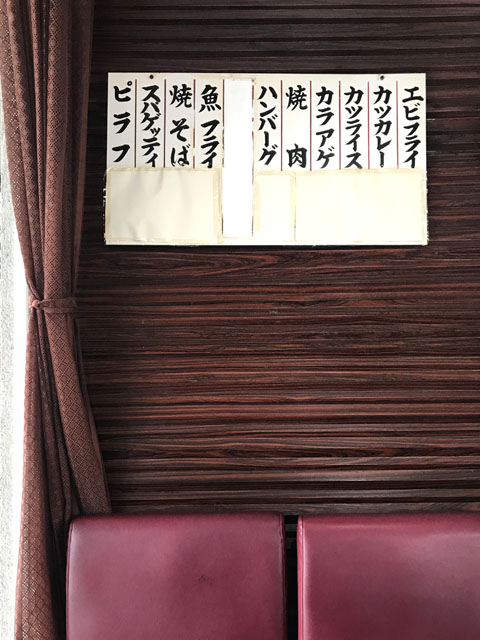 エビフライ
カツカレー
カツライス
カラアゲ
焼肉
ハンバーグ
魚フライ
焼そば
スパゲッティ
ピラフ